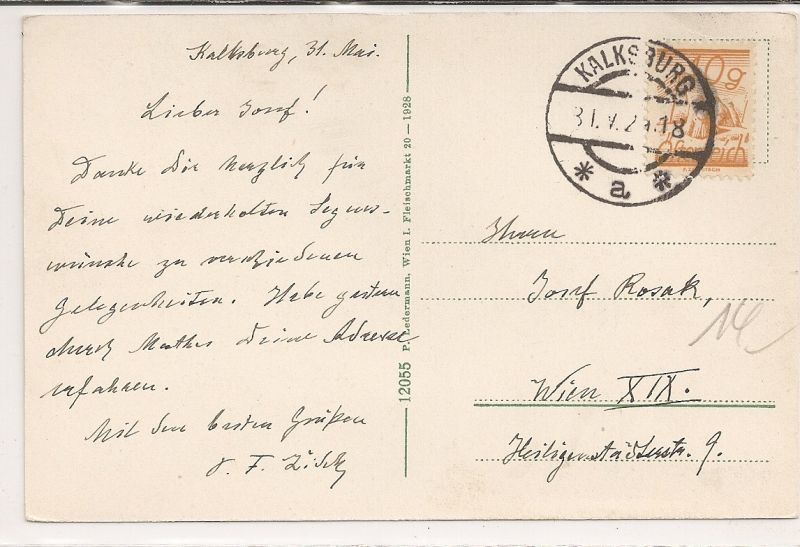 Kalksburg, 31. Mai.
Lieber Josef!
Danke Dir herzlich für
Deine wiederholten Segens-
wünsche zu verschiedenen
Gelegenheiten. Habe gestern
durch Deine Adresse
erfahren.
Mit den besten Grüßen
12055 P. Ledermann, Wien I. Fleischmarkt 20 — 1928
KALKSBURG
31.V.29.18
* a *
10g
Österreich
Herrn
Josef Rosak,
14
Wien XIX.
Heiligenstädterstr. 9.